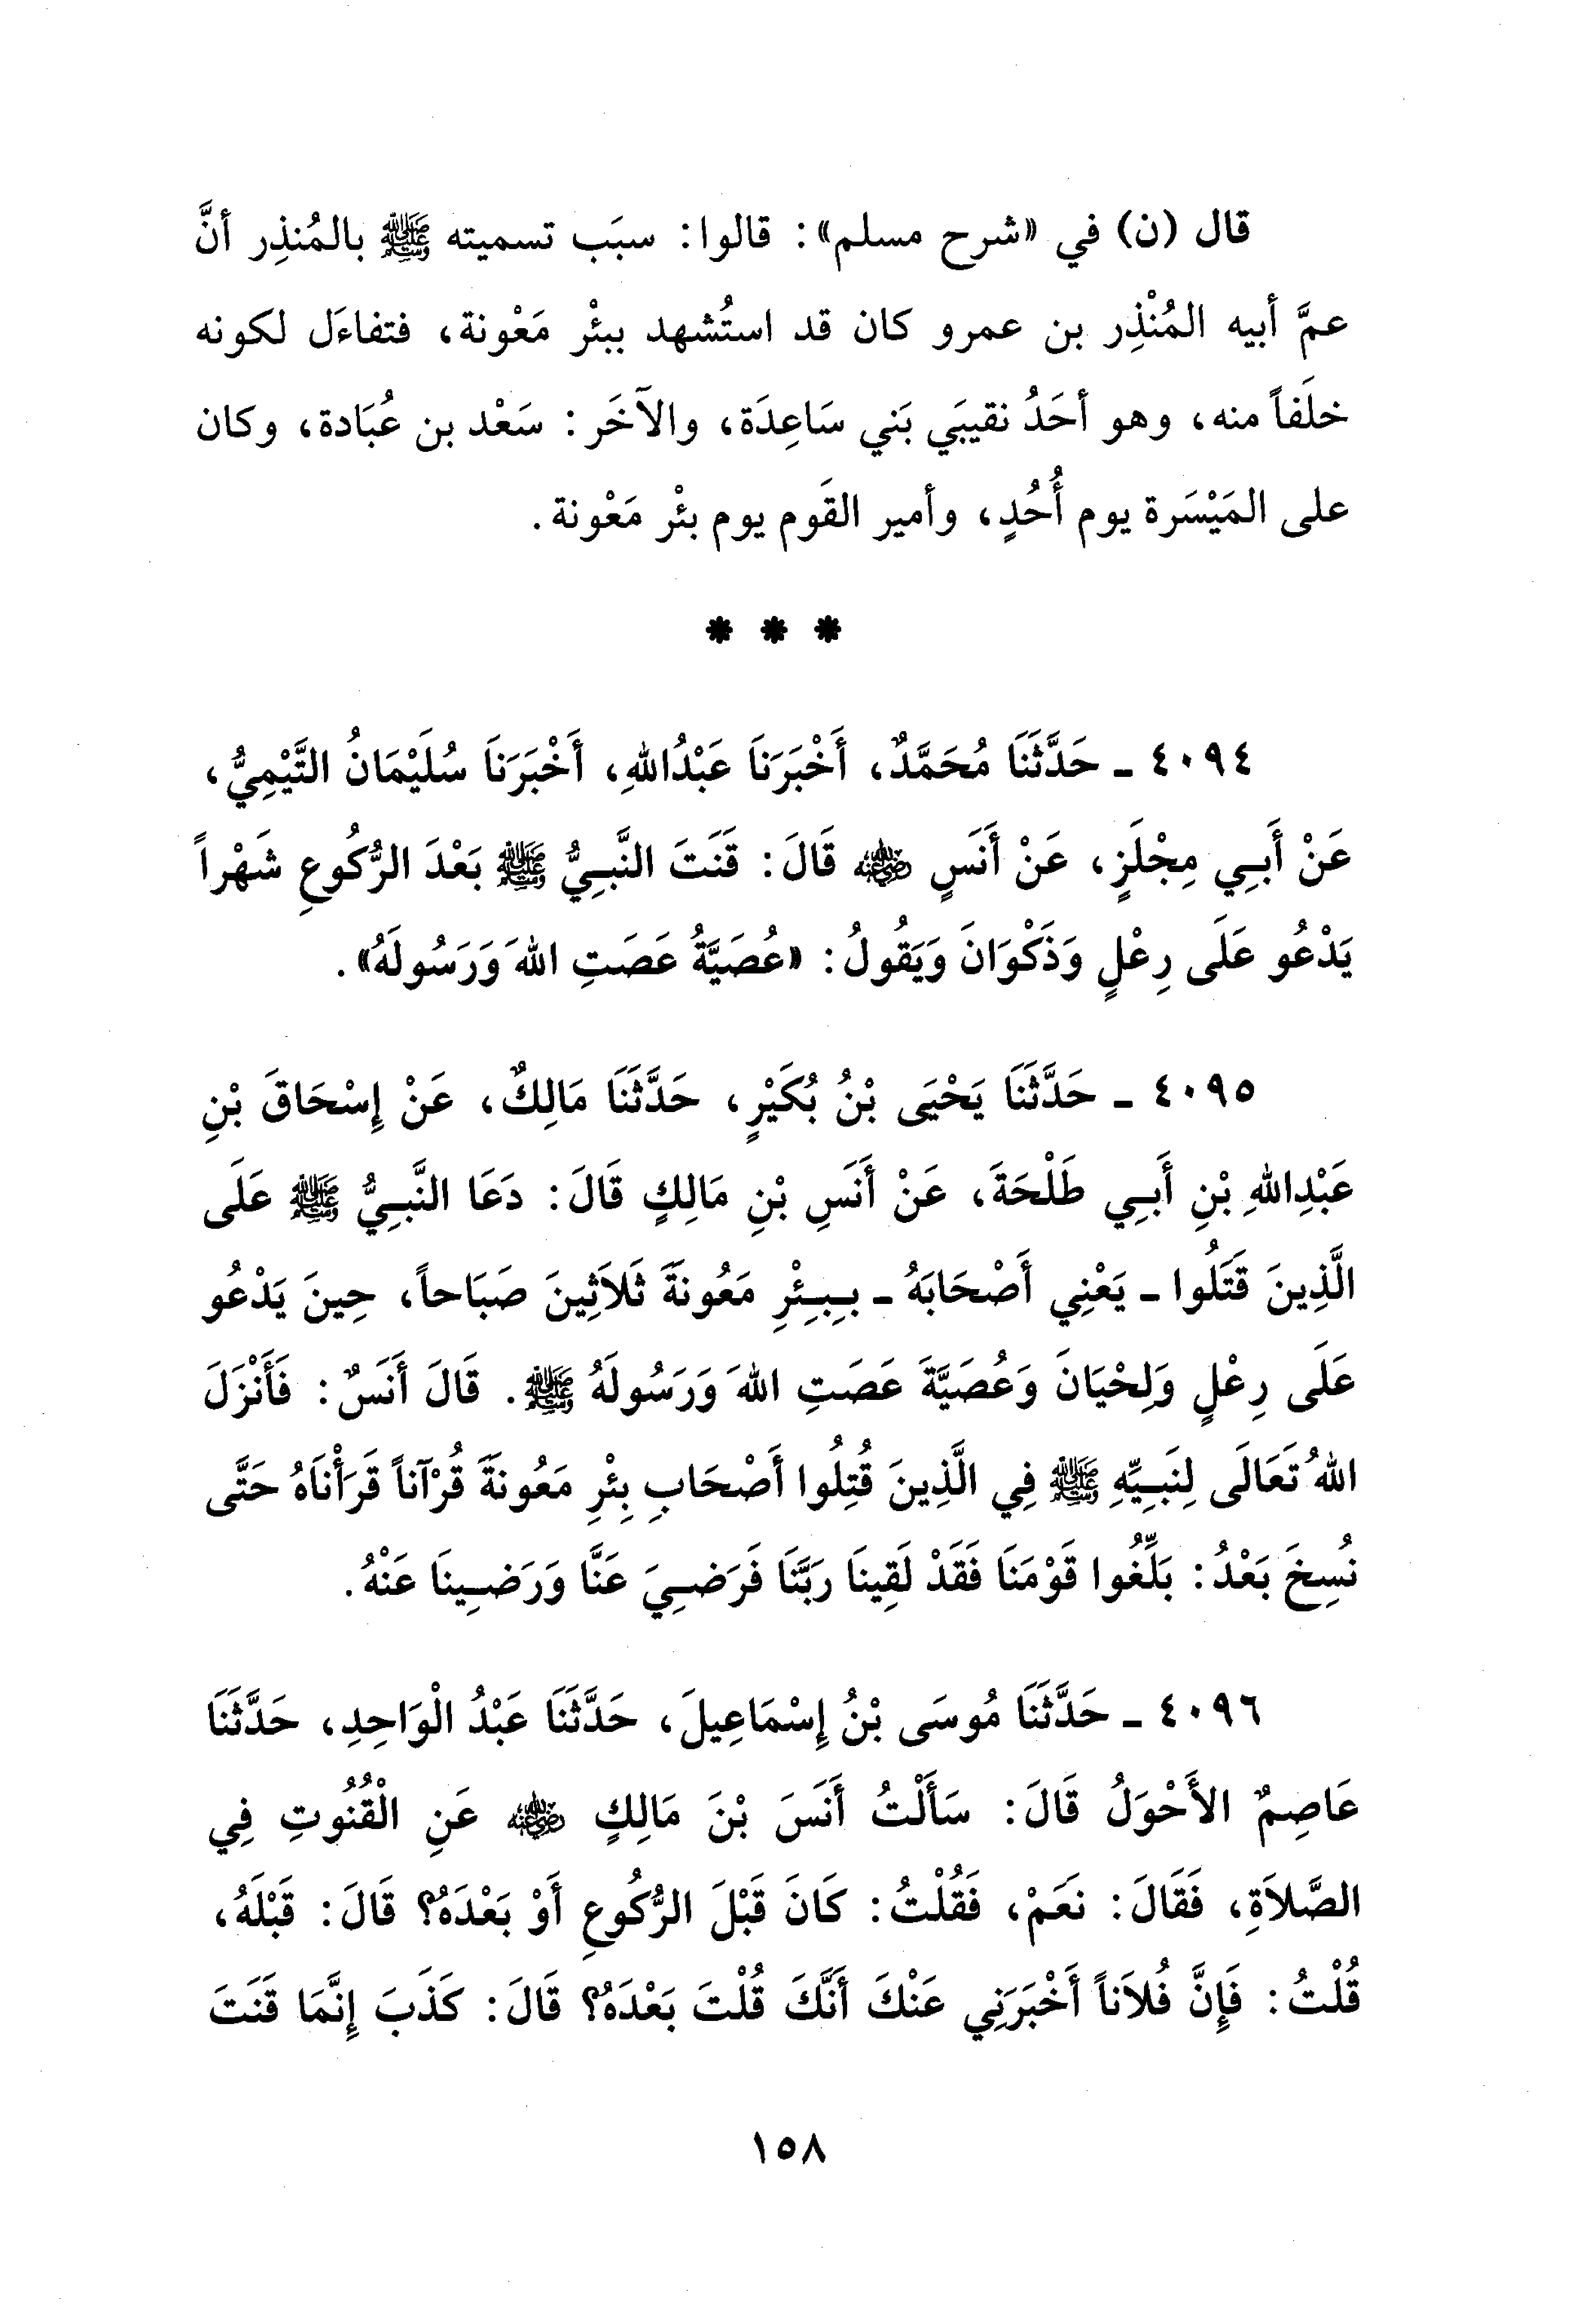 قال (ن) في «شرح مسلم»: قالوا: سبَب تسميته ﷺ بالمُنذِر أنَّ
عمَّ أبيه المُنْذِر بن عمرو كان قد استُشهد ببئْر مَعْونة، فتفاءَل لكونه
خلَفاً منه، وهو أحَدُ نقيبَي بَني سَاعِدَة، والآخَر: سَعْد بن عُبَادة، وكان
على المَيْسَرة يوم أُحُدٍ، وأمير القَوم يوم بئْر مَعْونة.
* * *
٤٠٩٤ ـ حَدَّثَنَا مُحَمَّدٌ، أَخْبَرَنَا عَبْدُاللهِ، أَخْبَرَنَا سُلَيْمَانُ التَّيْمِيُّ،
عَنْ أَبِي مِجْلَزٍ، عَنْ أَنَسٍ رضي الله عنه قَالَ: قَنَتَ النَّبِيُّ ﷺ بَعْدَ الرُّكُوعِ شَهْراً
يَدْعُو عَلَى رِعْلٍ وَذَكْوَانَ وَيَقُولُ: «عُصَيَّةُ عَصَتِ اللهَ وَرَسُولَهُ».
٤٠٩٥ ـ حَدَّثَنَا يَحْيَى بْنُ بُكَيْرٍ، حَدَّثَنَا مَالِكٌ، عَنْ إِسْحَاقَ بْنِ
عَبْدِاللهِ بْنِ أَبِي طَلْحَةَ، عَنْ أَنَسِ بْنِ مَالِكٍ قَالَ: دَعَا النَّبِيُّ ﷺ عَلَى
الَّذِينَ قَتَلُوا ـ يَعْنِي أَصْحَابَهُ ـ بِبِئْرِ مَعُونَةَ ثَلاَثِينَ صَبَاحاً، حِينَ يَدْعُو
عَلَى رِعْلٍ وَلِحْيَانَ وَعُصَيَّةَ عَصَتِ اللهَ وَرَسُولَهُ ﷺ. قَالَ أَنَسٌ: فَأَنْزَلَ
اللهُ تَعَالَى لِنَبِيِّهِ ﷺ فِي الَّذِينَ قُتِلُوا أَصْحَابِ بِئْرِ مَعُونَةَ قُرْآناً قَرَأْنَاهُ حَتَّى
نُسِخَ بَعْدُ: بَلِّغُوا قَوْمَنَا فَقَدْ لَقِينَا رَبَّنَا فَرَضِيَ عَنَّا وَرَضِينَا عَنْهُ.
٤٠٩٦ ـ حَدَّثَنَا مُوسَى بْنُ إِسْمَاعِيلَ، حَدَّثَنَا عَبْدُ الْوَاحِدِ، حَدَّثَنَا
عَاصِمٌ الأَحْوَلُ قَالَ: سَأَلْتُ أَنَسَ بْنَ مَالِكٍ رضي الله عنه عَنِ الْقُنُوتِ فِي
الصَّلاَةِ، فَقَالَ: نَعَمْ، فَقُلْتُ: كَانَ قَبْلَ الرُّكُوعِ أَوْ بَعْدَهُ؟ قَالَ: قَبْلَهُ،
قُلْتُ: فَإِنَّ فُلاَناً أَخْبَرَنِي عَنْكَ أَنَّكَ قُلْتَ بَعْدَهُ؟ قَالَ: كَذَبَ إِنَّمَا قَنَتَ
١٥٨